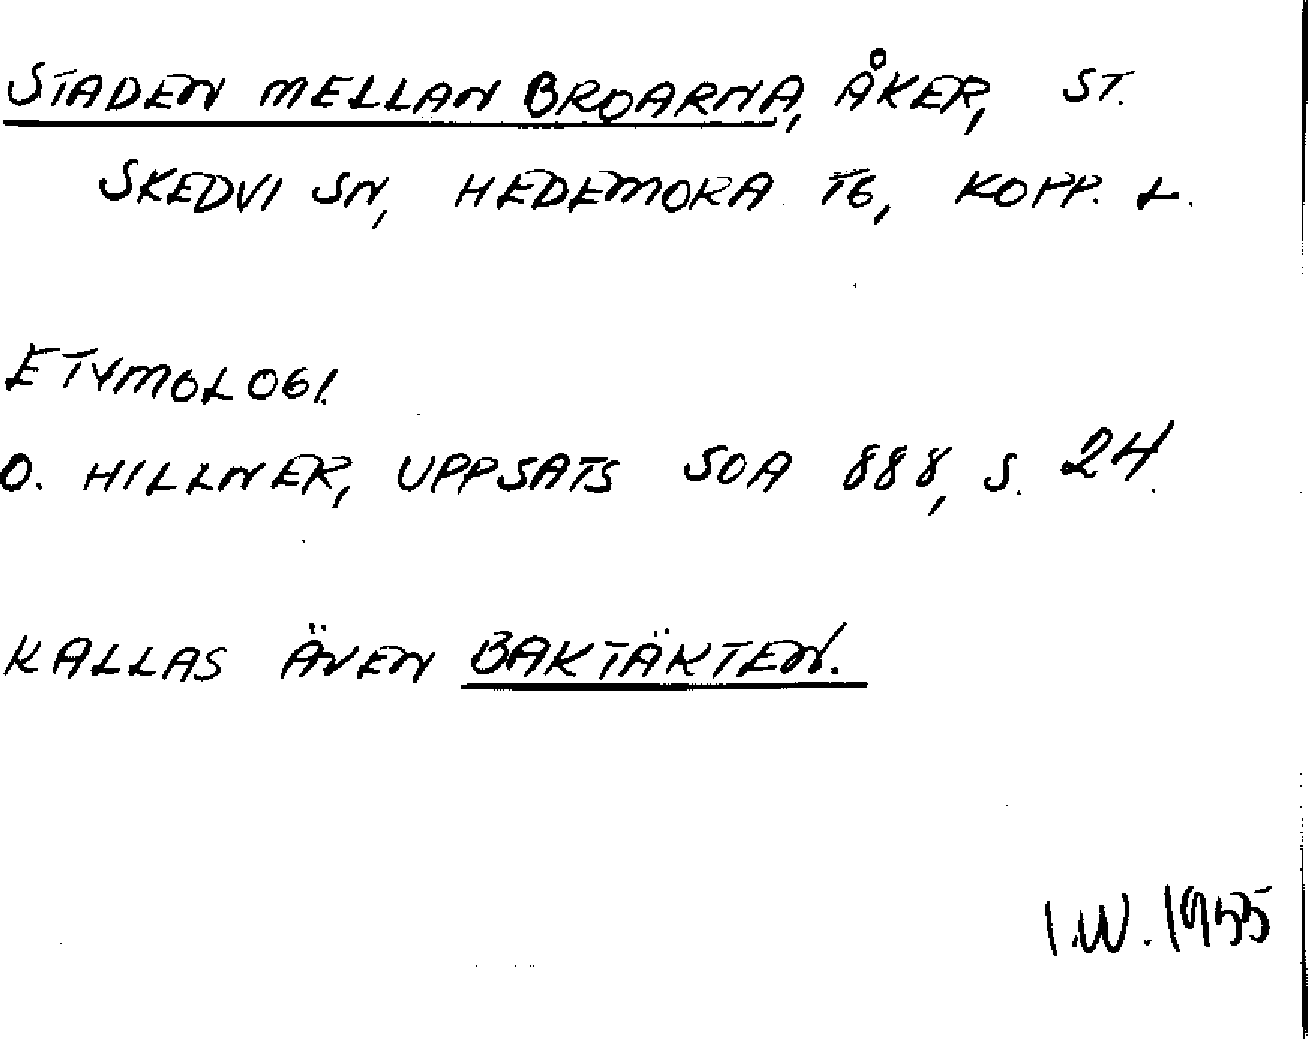 STADEN MELLAN BROARNA, ÅKER, ST.
SKEDVI SN, HEDEMORA TG, KOPP. L.
ETYMOLOGI.
O. HILLNER, UPPSATS SOA 888, S. 24.
KALLAS ÄVEN BAKTÄKTEN.
I.W. 1955